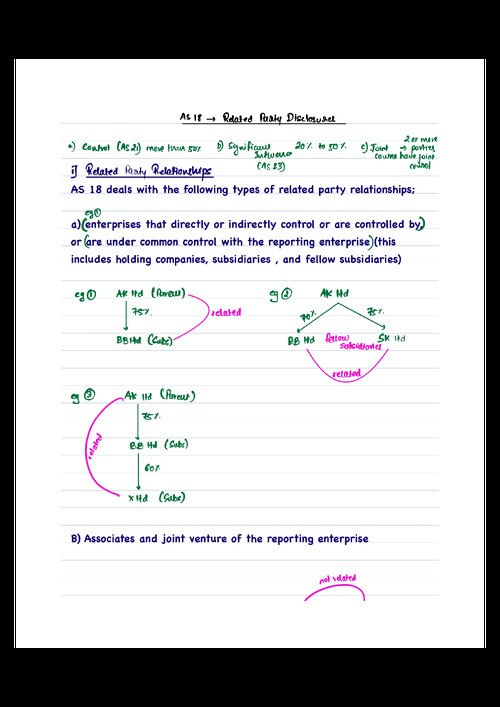 AS 18 → Related Party Disclosures
a) Control (AS 21) more than 50% b) Significant Influence (AS 23) 20% to 50% c) Joint control → 2 or more parties have joint control
i) Related Party Relationships
AS 18 deals with the following types of related party relationships;
eg ①
a) (enterprises that directly or indirectly control or are controlled by,)
or (are under common control with the reporting enterprise) (this
includes holding companies, subsidiaries , and fellow subsidiaries)
eg ① AK ltd (Parent)
75%
related
BB ltd (Subs)
eg ② AK ltd
70% 75%
BB ltd fellow subsidiaries SK ltd
related
eg ③ AK ltd (Parent)
75%
related
BB ltd (Subs)
60%
X ltd (Subs)
B) Associates and joint venture of the reporting enterprise
not related